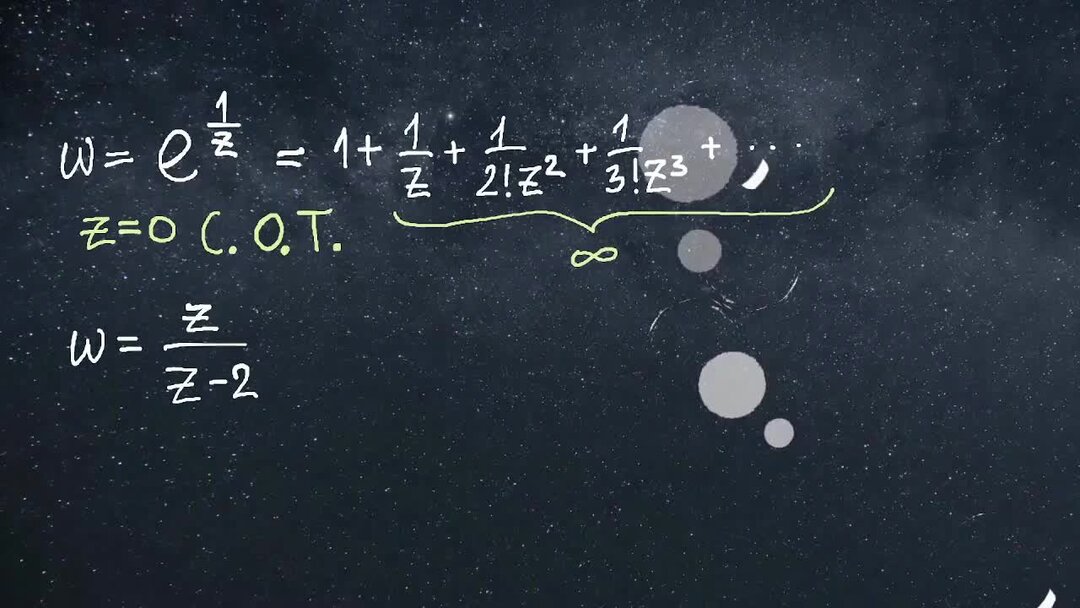 w = e^{1/z} = 1 + 1/z + 1/2!z² + 1/3!z³ + ...
z=0 С.О.Т.
∞
w = z/(z-2)